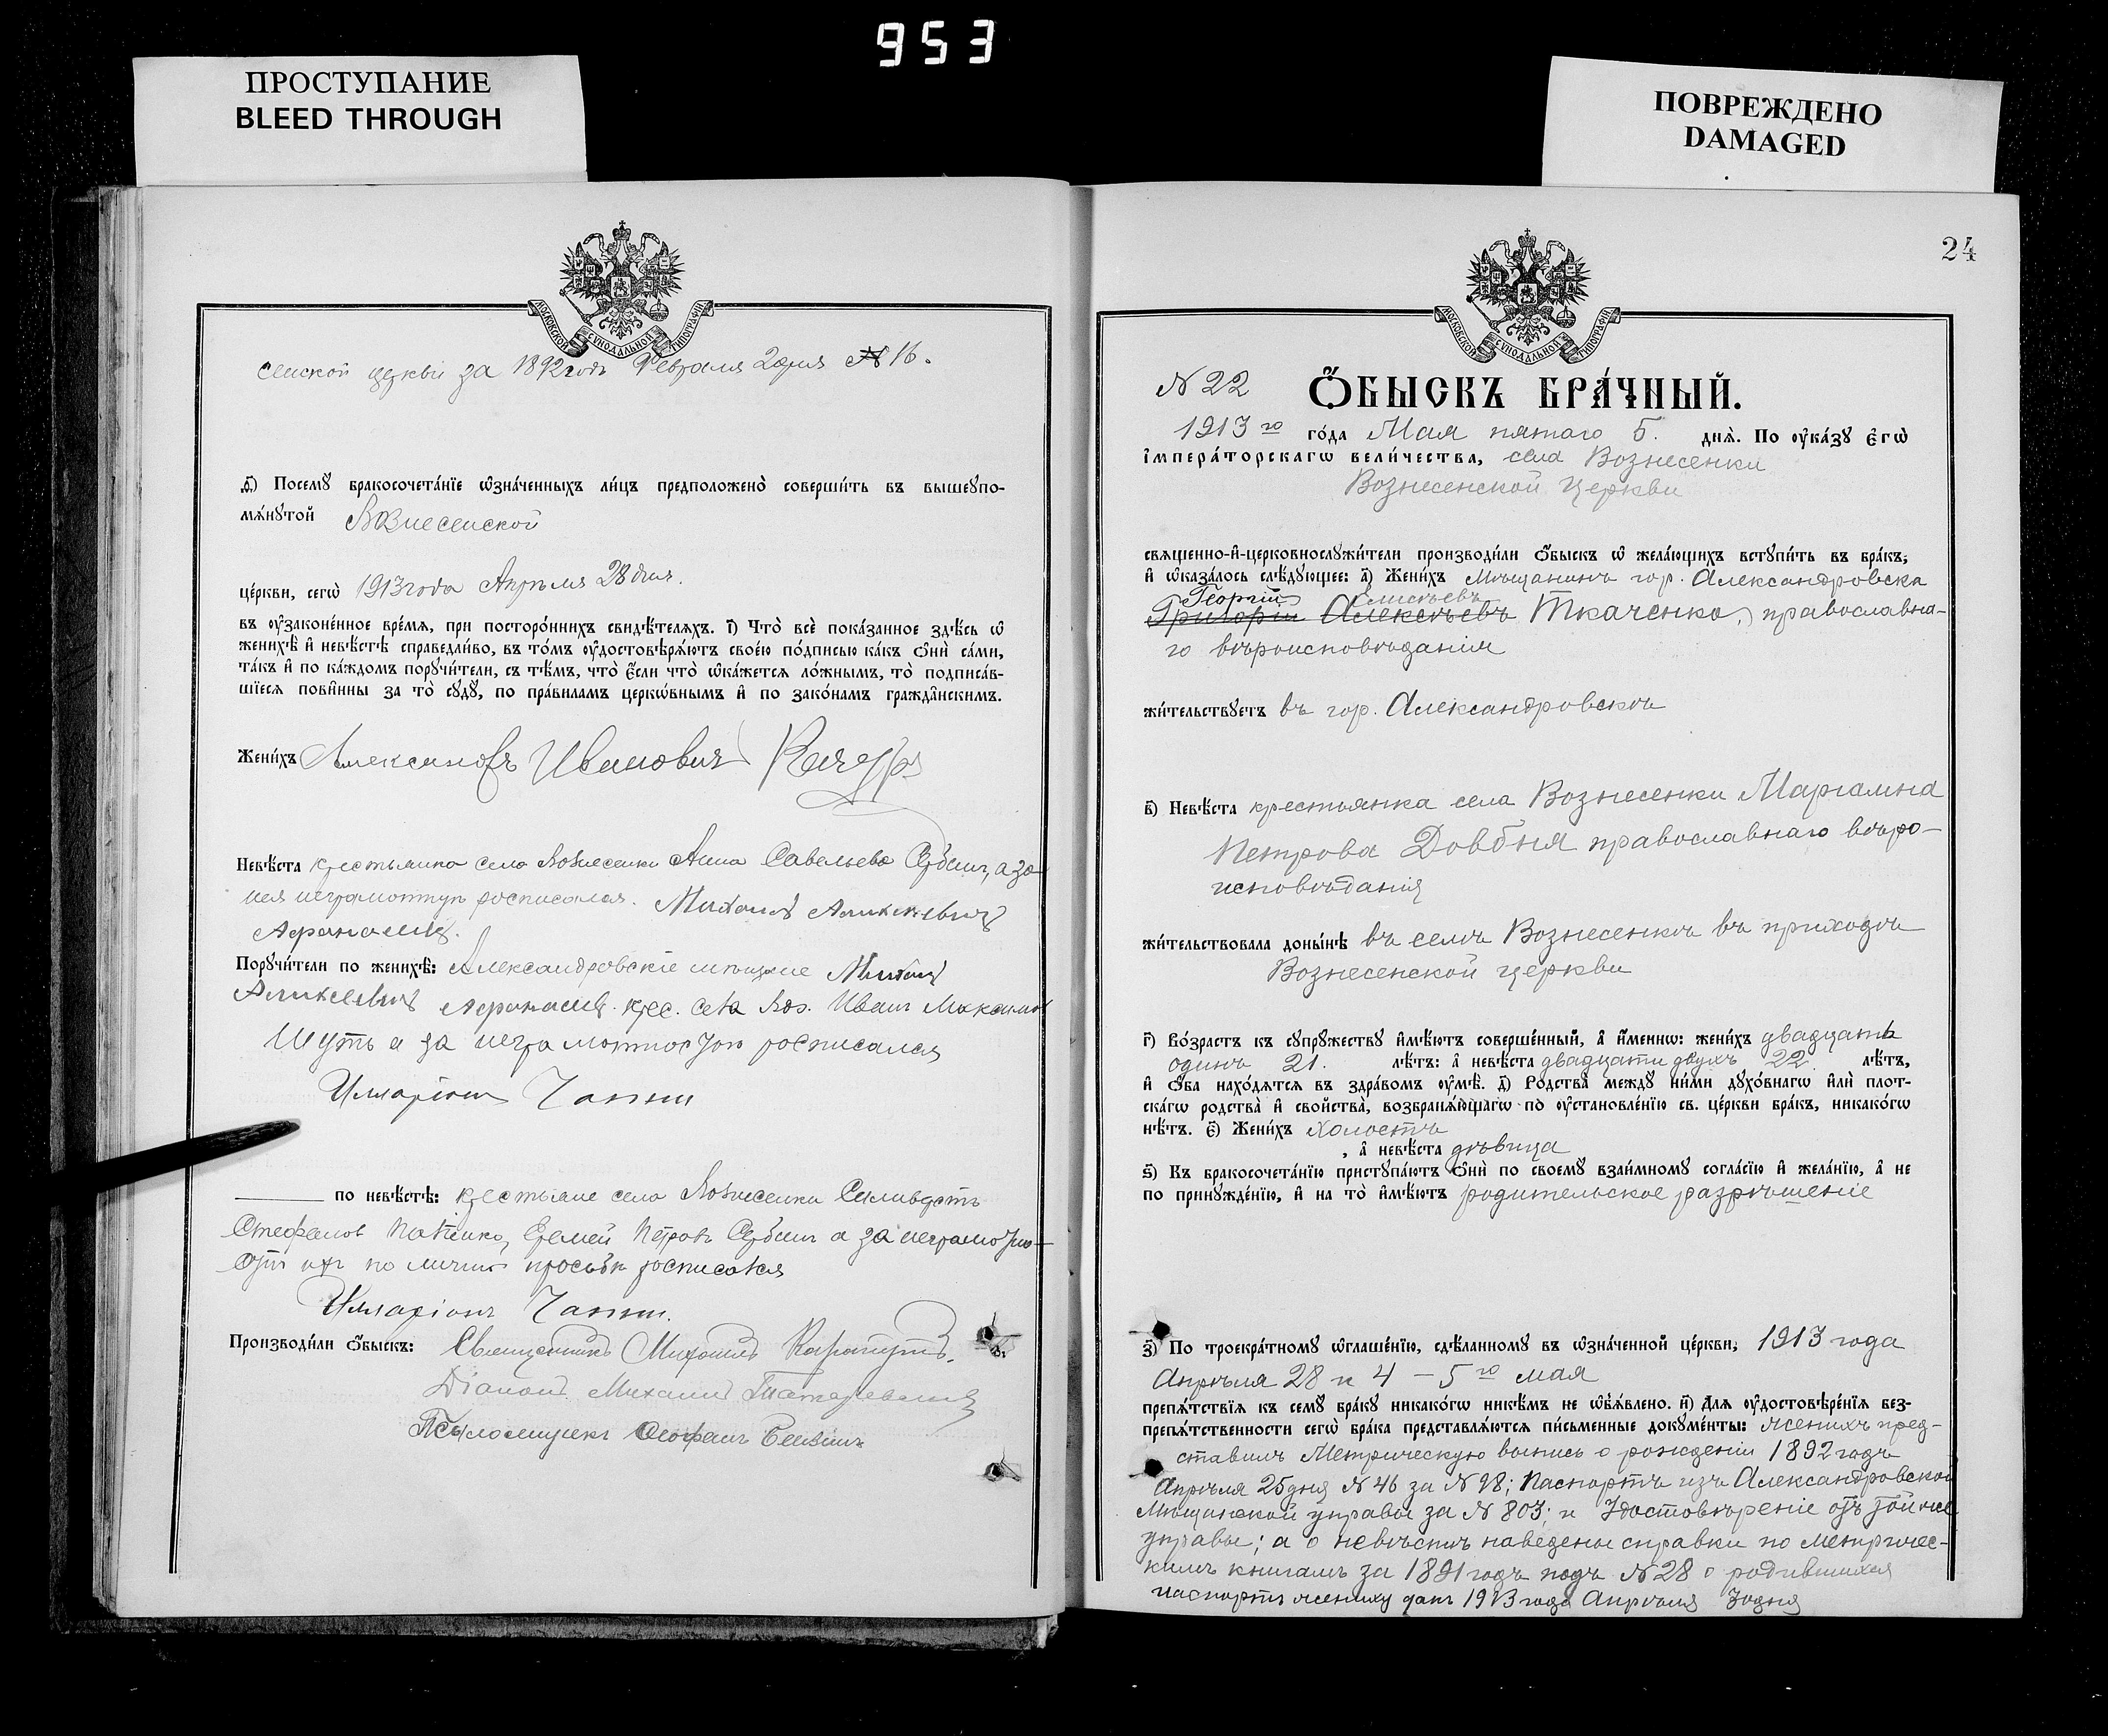 953
ПРОСТУПАНИЕ
BLEED THROUGH
ПОВРЕЖДЕНО
DAMAGED
МОСКОВСКОЙ СѴНОДАЛЬНОЙ ТИПОГРАФІИ
за 1892 годъ Февраля 2 дня № 16.
Ѳ҃) Посемꙋ бракосочета́нїе ѡ҆зна́ченныхъ ли́цъ предположено̀ соверши́ть въ вышеꙋпо-
мѧ́нꙋтой Вознесенской
це́ркви, сегѡ̀ 1913 года Апрѣля 28 дня.
въ ᲂу҆зако́ненное вре́мѧ, при посторо́ннихъ свидѣ́телѧхъ. І҃) Что̀ всѐ пока́занное здѣ́сь ѡ҆
женихѣ̀ и҆ невѣ́стѣ справедли́во, въ то́мъ ᲂу҆достовѣрѧ́ютъ свое́ю по́дписью ка́къ ѻ҆нѝ са́ми,
та́къ и҆ по ка́ждомъ порꙋчи́тели, съ тѣ́мъ, что̀ є҆́сли что̀ ѡ҆ка́жетсѧ ло́жнымъ, то̀ подписа́в-
шїесѧ пови́нны за то̀ сꙋдꙋ̀, по пра́виламъ церко́внымъ и҆ по зако́намъ гражда́нскимъ.
Жени́хъ Александръ Ивановичъ
Невѣ́ста крестьянка села Вознесенки Анна Савельева Сербинъ, а за
нея неграмотную росписался. Михаилъ Алексѣевичъ
Порꙋчи́тели по женихѣ̀: Александровскіе мѣщане Михаилъ
Алексѣевичъ крес. села Воз. Иванъ Максимовъ
Шуть а за неграмотностью росписался
Илларіонъ
по невѣ́стѣ: крестьяне села Вознесенки
Стефановъ Еремей Петровъ Сербинъ а за неграмотно-
стью ихъ по личной просьбѣ росписался
Илларіонъ
Производи́ли ѻ҆́быскъ: Священникъ Михаилъ
Діаконъ Михаилъ
Псаломщикъ
24
МОСКОВСКОЙ СѴНОДАЛЬНОЙ ТИПОГРАФІИ
№ 22 Ѻ҆́БЫСКЪ БРА́ЧНЫЙ.
1913 го го́да Мая пятаго 5. днѧ̀. По ᲂу҆ка́зꙋ є҆гѡ̀
і҆мпера́торскагѡ вели́чества, села Вознесенки
Вознесенской церкви
свѧще́нно-и҆-церковнослꙋжи́тели производи́ли ѻ҆́быскъ ѡ҆ жела́ющихъ встꙋпи́ть въ бра́къ,
и҆ ѡ҆каза́лось слѣ́дꙋющее: а҃) Жени́хъ Мѣщанинъ гор. Александровска
Георгій Елисѣевъ
Григорій Алексѣевъ Ткаченко, православна-
го вѣроисповѣданія
жи́тельствꙋетъ въ гор. Александровскѣ
в҃) Невѣ́ста крестьянка села Вознесенки Маріамна
Петрова Довбня православнаго вѣро-
исповѣданія
жи́тельствовала доны́нѣ въ селѣ Вознесенкѣ въ приходѣ
Вознесенской церкви
г҃) Во́зрастъ къ сꙋпрꙋ́жествꙋ и҆мѣ́ютъ соверше́нный, а҆ и҆́менно: жени́хъ двадцать
одинъ 21. лѣ́тъ: а҆ невѣ́ста двадцати двухъ 22. лѣ́тъ,
и҆ ѻ҆́ба нахо́дѧтсѧ въ здра́вомъ ᲂу҆мѣ̀. д҃) Родства̀ междꙋ̀ ни́ми дꙋхо́внагѡ и҆лѝ плот-
ска́гѡ родства̀ и҆ свойства̀, возбранѧ́ющагѡ по̀ ᲂу҆становле́нїю св. це́ркви бра́къ, никако́гѡ
нѣ́тъ. є҃) Жени́хъ холостъ
, а҆ невѣ́ста дѣвица
ѕ҃) Къ бракосочета́нїю пристꙋпа́ютъ ѻ҆нѝ по своемꙋ̀ взаи́мномꙋ согла́сїю и҆ жела́нїю, а҆ не
по принꙋжде́нїю, и҆ на то̀ и҆мѣ́ютъ родительское разрѣшеніе
з҃) По троекра́тномꙋ ѡ҆глаше́нїю, сдѣ́ланномꙋ въ ѡ҆зна́ченной це́ркви, 1913 года
Апрѣля 28 и 4 – 5 го мая
препѧ́тствїѧ къ семꙋ̀ бра́кꙋ никако́гѡ никѣ́мъ не ѡ҆б̾ѧ́влено. и҃) Длѧ ᲂу҆достовѣре́нїѧ без-
препѧ́тственности сегѡ̀ бра́ка представлѧ́ютсѧ пи́сьменные докꙋме́нты: женихъ пред-
ставилъ Метрическую выпись о рожденіи 1892 годъ
Апрѣля 25 дня № 46 за № 98; Паспортъ изъ Александровской
Мѣщанской управы за № 803; и Удостовѣреніе отъ той же
управы; а о невѣстѣ наведены справки по метричес-
кимъ книгамъ за 1891 годъ подъ № 28 о родившихся
паспортъ жениху данъ 1913 года Апрѣля 30 дня